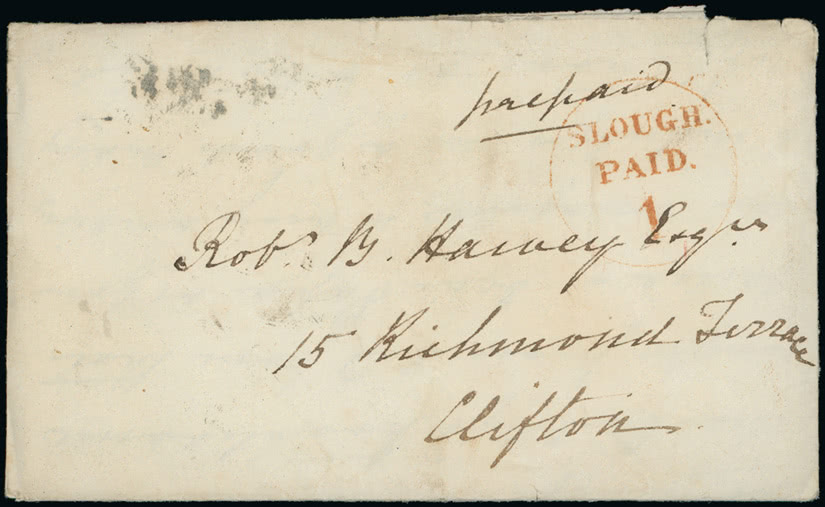 prepaid
SLOUGH.
PAID.
1
Robt. B. Harvey Esqre
15 Richmond Terrace
Clifton